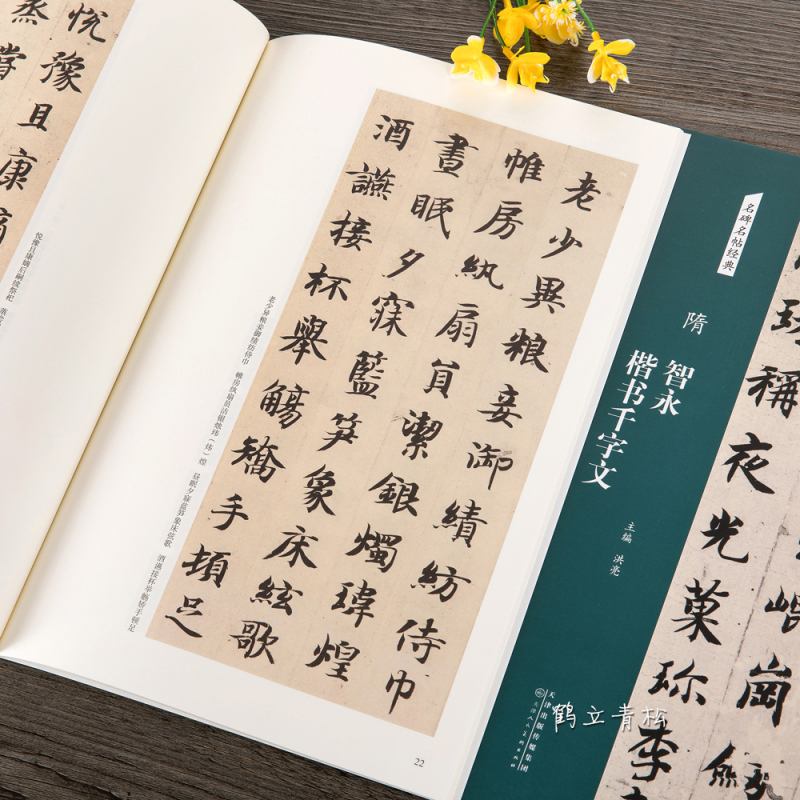 悅豫且康嫡
蒸嘗
悦豫且康嫡后嗣续祭祀
老少異粮妾御績紡侍巾
帷房紈扇員潔銀燭瑋煌
晝眠夕寐籃笋象床絃歌
酒讌接杯舉觴矯手頓足
老少异粮妾御绩纺侍巾 帷房纨扇员洁银烛玮（炜）煌 昼眠夕寐蓝笋象床弦歌 酒讌接杯举觞矫手顿足
22
名碑名帖经典
隋
智永
楷书千字文
主编 洪亮
天津出版传媒集团
天津人民美术出版社
崐崗
稱夜光菓珍李
鹤立青松